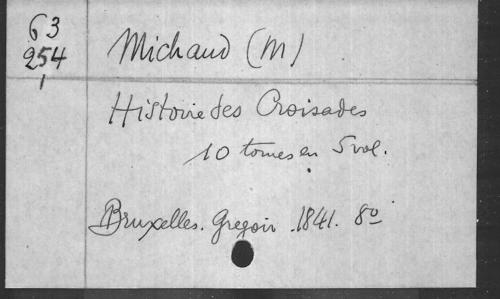 63
254
1
Michaud (M)
Histoire des Croisades
10 tomes en 5 vol.
Bruxelles. Gregoir. 1841. 8º